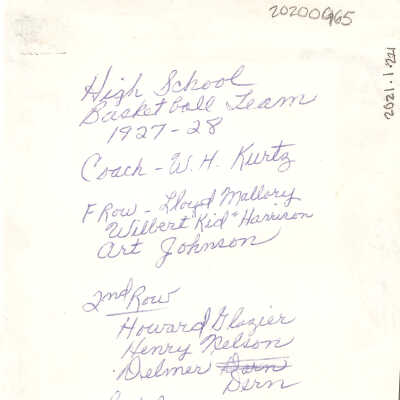 20200965
2021.1.221
High School
Basket Ball Team
1927-28
Coach - W. H. Kurtz
F Row - Lloyd Mallory
Wilbert Kid" Harrison
Art Johnson
2nd Row
Howard Glazier
Henry Nelson
Delmer Dorn
Dern